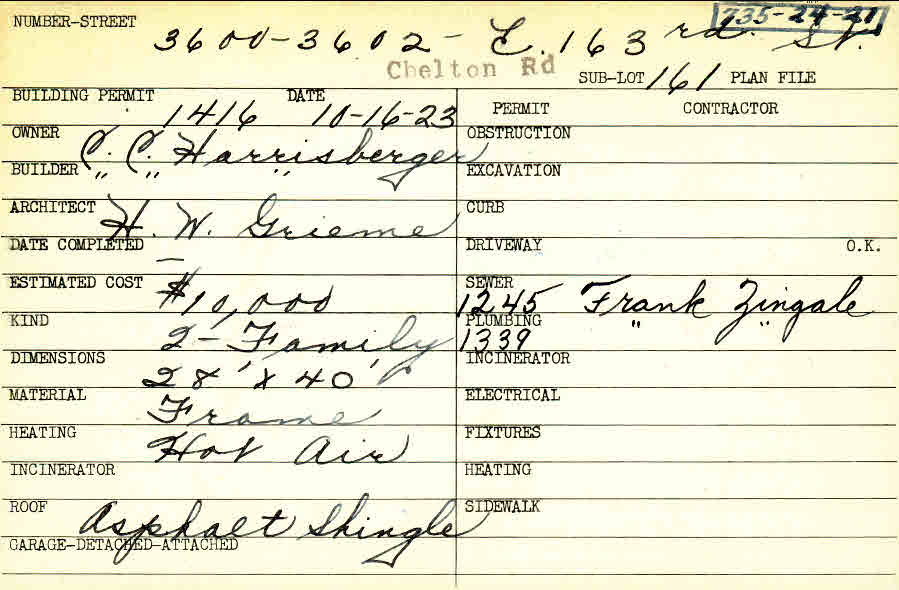 735-24-21
NUMBER-STREET 3600-3602- E. 163rd. St.
Chelton Rd
SUB-LOT 161 PLAN FILE
BUILDING PERMIT 1416 DATE 10-16-23
PERMIT CONTRACTOR
OWNER C. C. Harrisberger
OBSTRUCTION
BUILDER " " "
EXCAVATION
ARCHITECT H. W. Grieme
CURB
DATE COMPLETED —
DRIVEWAY O.K.
ESTIMATED COST $10,000
SEWER 1245 Frank Zingale
KIND 2-Family
PLUMBING 1339 " "
DIMENSIONS 28' x 40'
INCINERATOR
MATERIAL Frame
ELECTRICAL
HEATING Hot Air
FIXTURES
INCINERATOR
HEATING
ROOF Asphalt Shingle
SIDEWALK
GARAGE-DETACHED-ATTACHED